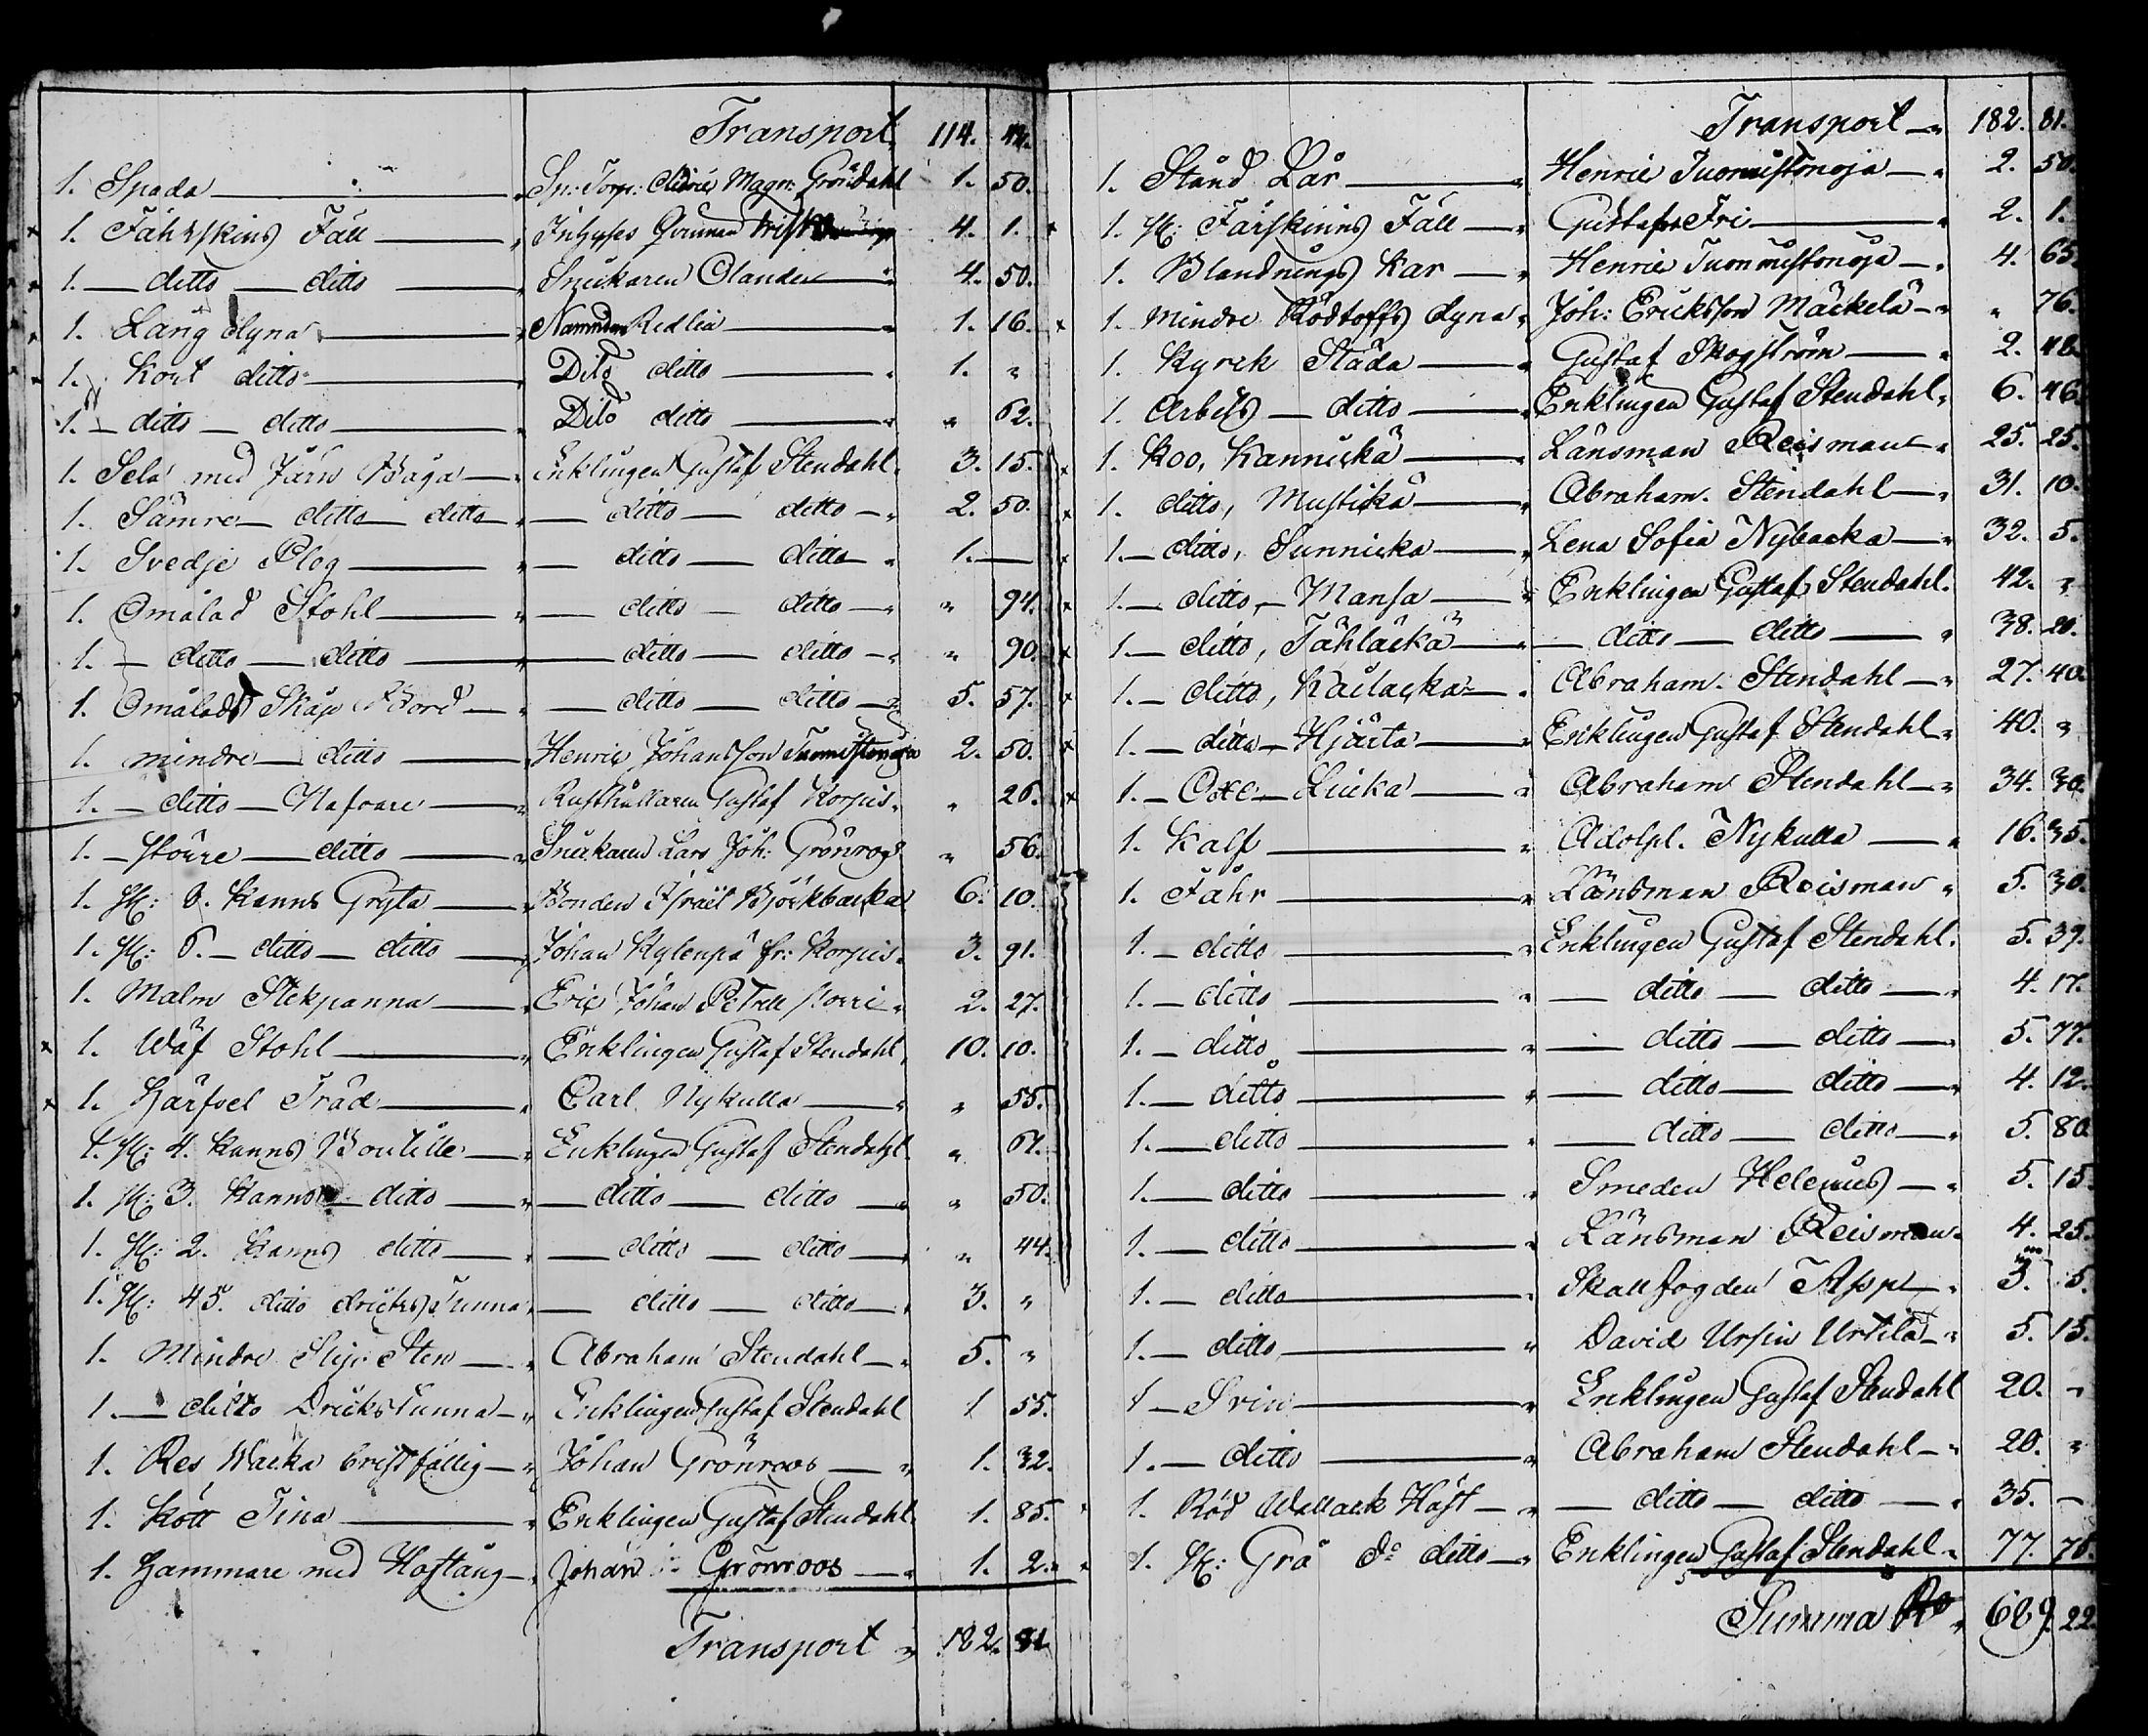 Transport 114.
1. Spada Sn: Torp: Magn: Gröndahl 1. 50.
1. Fåhrskins Fäll Inhyses Qvinnan 4. 1.
1. ditto ditto Snickaren Olander 4. 50.
1. Lång dyna Nämndm Redlig 1. 16.
1. Kort ditto Dito ditto 1. "
1. ditto ditto Dito ditto " 62.
1. Sela med Järn Båga Enklingen Gustaf Stendahl 3. 15.
1. Sämre ditto ditto ditto ditto 2. 50.
1. Svedje Plog ditto ditto 1. —
1. Omålad Stohl ditto ditto " 94.
1. ditto ditto ditto ditto " 90.
1. Omåladt Skåp Bord ditto ditto 5. 57.
1. mindre ditto Henric Johansson Tuomistonoja 2. 50.
1. ditto Nafvare Rusthållaren Gustaf Korpis " 26.
1. större ditto Snickaren Lars Joh: Grönroos " 56.
1. St: 8. Kanns Gryta Bonden Israel Björkbacka 6. 10.
1. St: 6. ditto ditto Johan Kylenpä fr: Korpis 3. 91.
1. Malm Stekpanna Eric Johan Petrell 2. 27.
1. Wäf Stohl Enklingen Gustaf Stendahl 10. 10.
1. Härfvel Träd Carl Nykulla " 55.
1. St: 4. Kanns Boutille Enklingen Gustaf Stendahl " 67.
1. St: 3. Kanns ditto ditto ditto " 50.
1. St: 2. Kanns ditto ditto ditto " 44.
1. St: 45. ditto dricks Tunna ditto ditto 3. "
1. Mindre Slip Sten Abraham Stendahl 5. "
1. ditto Dricks Tunna Enklingen Gustaf Stendahl 1 55.
1. Res Wacka bristfällig Johan Grönroos 1. 32.
1. Kött Tina Enklingen Gustaf Stendahl 1. 85.
1. Hammare med Hoftång Johan Grönroos 1. 2.
Transport 182. 81.
Transport 182. 81.
1. Stånd Lår Henric Tuomistonoja 2. 50.
1. St: Fårskinns Fäll Gustaf Fri 2. 1.
1. Blandnings Kar Henric Tuomistonoja 4. 65.
1. Mindre Dyna Joh: Ericksson Mäckelä " 76.
1. Kyrck Släda Gustaf Skogström 2. 48.
1. Arbets ditto Enklingen Gustaf Stendahl 6. 46.
1. Koo, Kannicka Länsman Reisman 25. 25.
1. ditto, Musticka Abraham Stendahl 31. 10.
1. ditto, Sunnicka Lena Sofia Nybacka 32. 5.
1. ditto, Mansa Enklingen Gustaf Stendahl 42. "
1. ditto, Tähläckä ditto ditto 38. 20.
1. ditto, Kailacka Abraham Stendahl 27. 40.
1. ditto Hjärta Enklingen Gustaf Stendahl 40. "
1. Oxe Licka Abraham Stendahl 34. 30.
1. Kalf Adolph. Nykulla 16. 35.
1. Fåhr Länsman Reisman 5. 30.
1. ditto Enklingen Gustaf Stendahl 5. 39.
1. ditto ditto ditto 4. 17.
1. ditto ditto ditto 5. 77.
1. ditto ditto ditto 4. 12.
1. ditto ditto ditto 5. 80.
1. ditto Smeden Helenius 5. 15.
1. ditto Länsman Reisman 4. 25.
1. ditto Skallfogden Asp 3. 5.
1. ditto David Ursin Urtila 5. 15.
1 Svin Enklingen Gustaf Stendahl 20. "
1. ditto Abraham Stendahl 20. "
1. Röd Wallack Häst ditto ditto 35. —
1. St: Grå do ditto Enklingen Gustaf Stendahl 77. 75.
Summa Ro 689. 22.